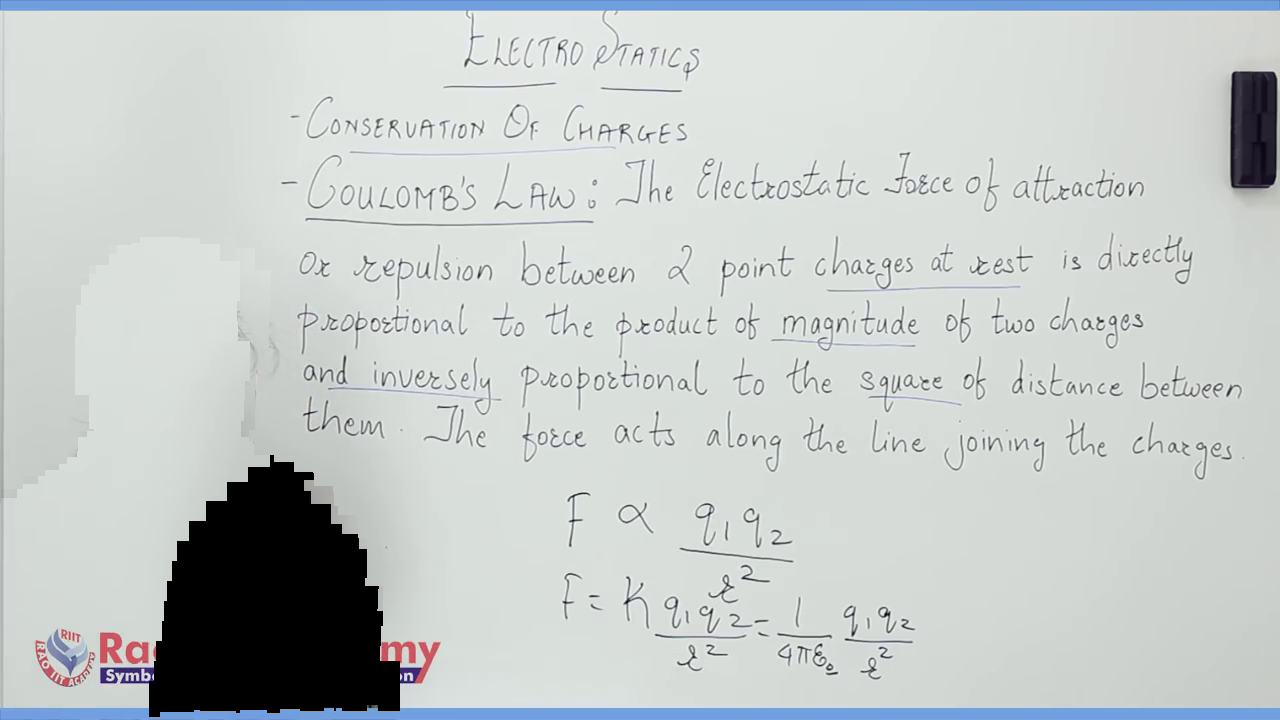 ELECTRO STATICS
- CONSERVATION OF CHARGES
- COULOMB'S LAW : The Electrostatic Force of attraction
or repulsion between 2 point charges at rest is directly
proportional to the product of magnitude of two charges
and inversely proportional to the square of distance between
them. The force acts along the line joining the charges.
F ∝ q₁q₂/r²
F = K q₁q₂/r² = 1/4πε₀ q₁q₂/r²
RIIT
RAO IIT ACADEMY